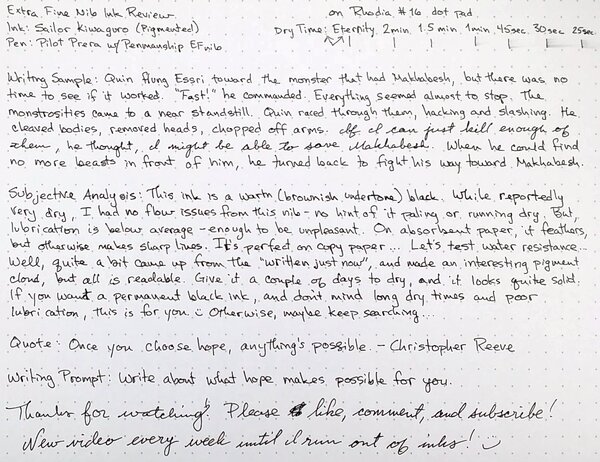 Extra Fine Nib Ink Review
on Rhodia #16 dot pad
Ink: Sailor Kiwaguro (Pigmented)
Dry Time: Eternity 2min. 1.5 min. 1min. 45sec. 30sec 25sec.
Pen: Pilot Prera w/ Penmanship EF nib
Writing Sample: Quin flung Essri toward the monster that had Makhabesh, but there was no
time to see if it worked. "Fast!" he commanded. Everything seemed almost to stop. The
monstrosities came to a near standstill. Quin raced through them, hacking and slashing. He
cleaved bodies, removed heads, chopped off arms. If I can just kill enough of
them, he thought, I might be able to save Makhabesh. When he could find
no more beasts in front of him, he turned back to fight his way toward Makhabesh.
Subjective Analysis: This ink is a warm (brownish undertone) black. While reportedly
very dry, I had no flow issues from this nib - no hint of it paling or running dry. But,
lubrication is below average - enough to be unpleasant. On absorbent paper, it feathers,
but otherwise makes sharp lines. It's perfect on copy paper... Let's test water resistance...
Well, quite a bit came up from the "written just now", and made an interesting pigment
cloud, but all is readable. Give it a couple of days to dry, and it looks quite solid.
If you want a permanent black ink, and don't mind long dry times and poor
lubrication, this is for you Otherwise, maybe keep searching...
Quote: Once you choose hope, anything's possible. - Christopher Reeve
Writing Prompt: Write about what hope makes possible for you.
Thanks for watching! Please like, comment, and subscribe!
New video every week until I run out of inks!